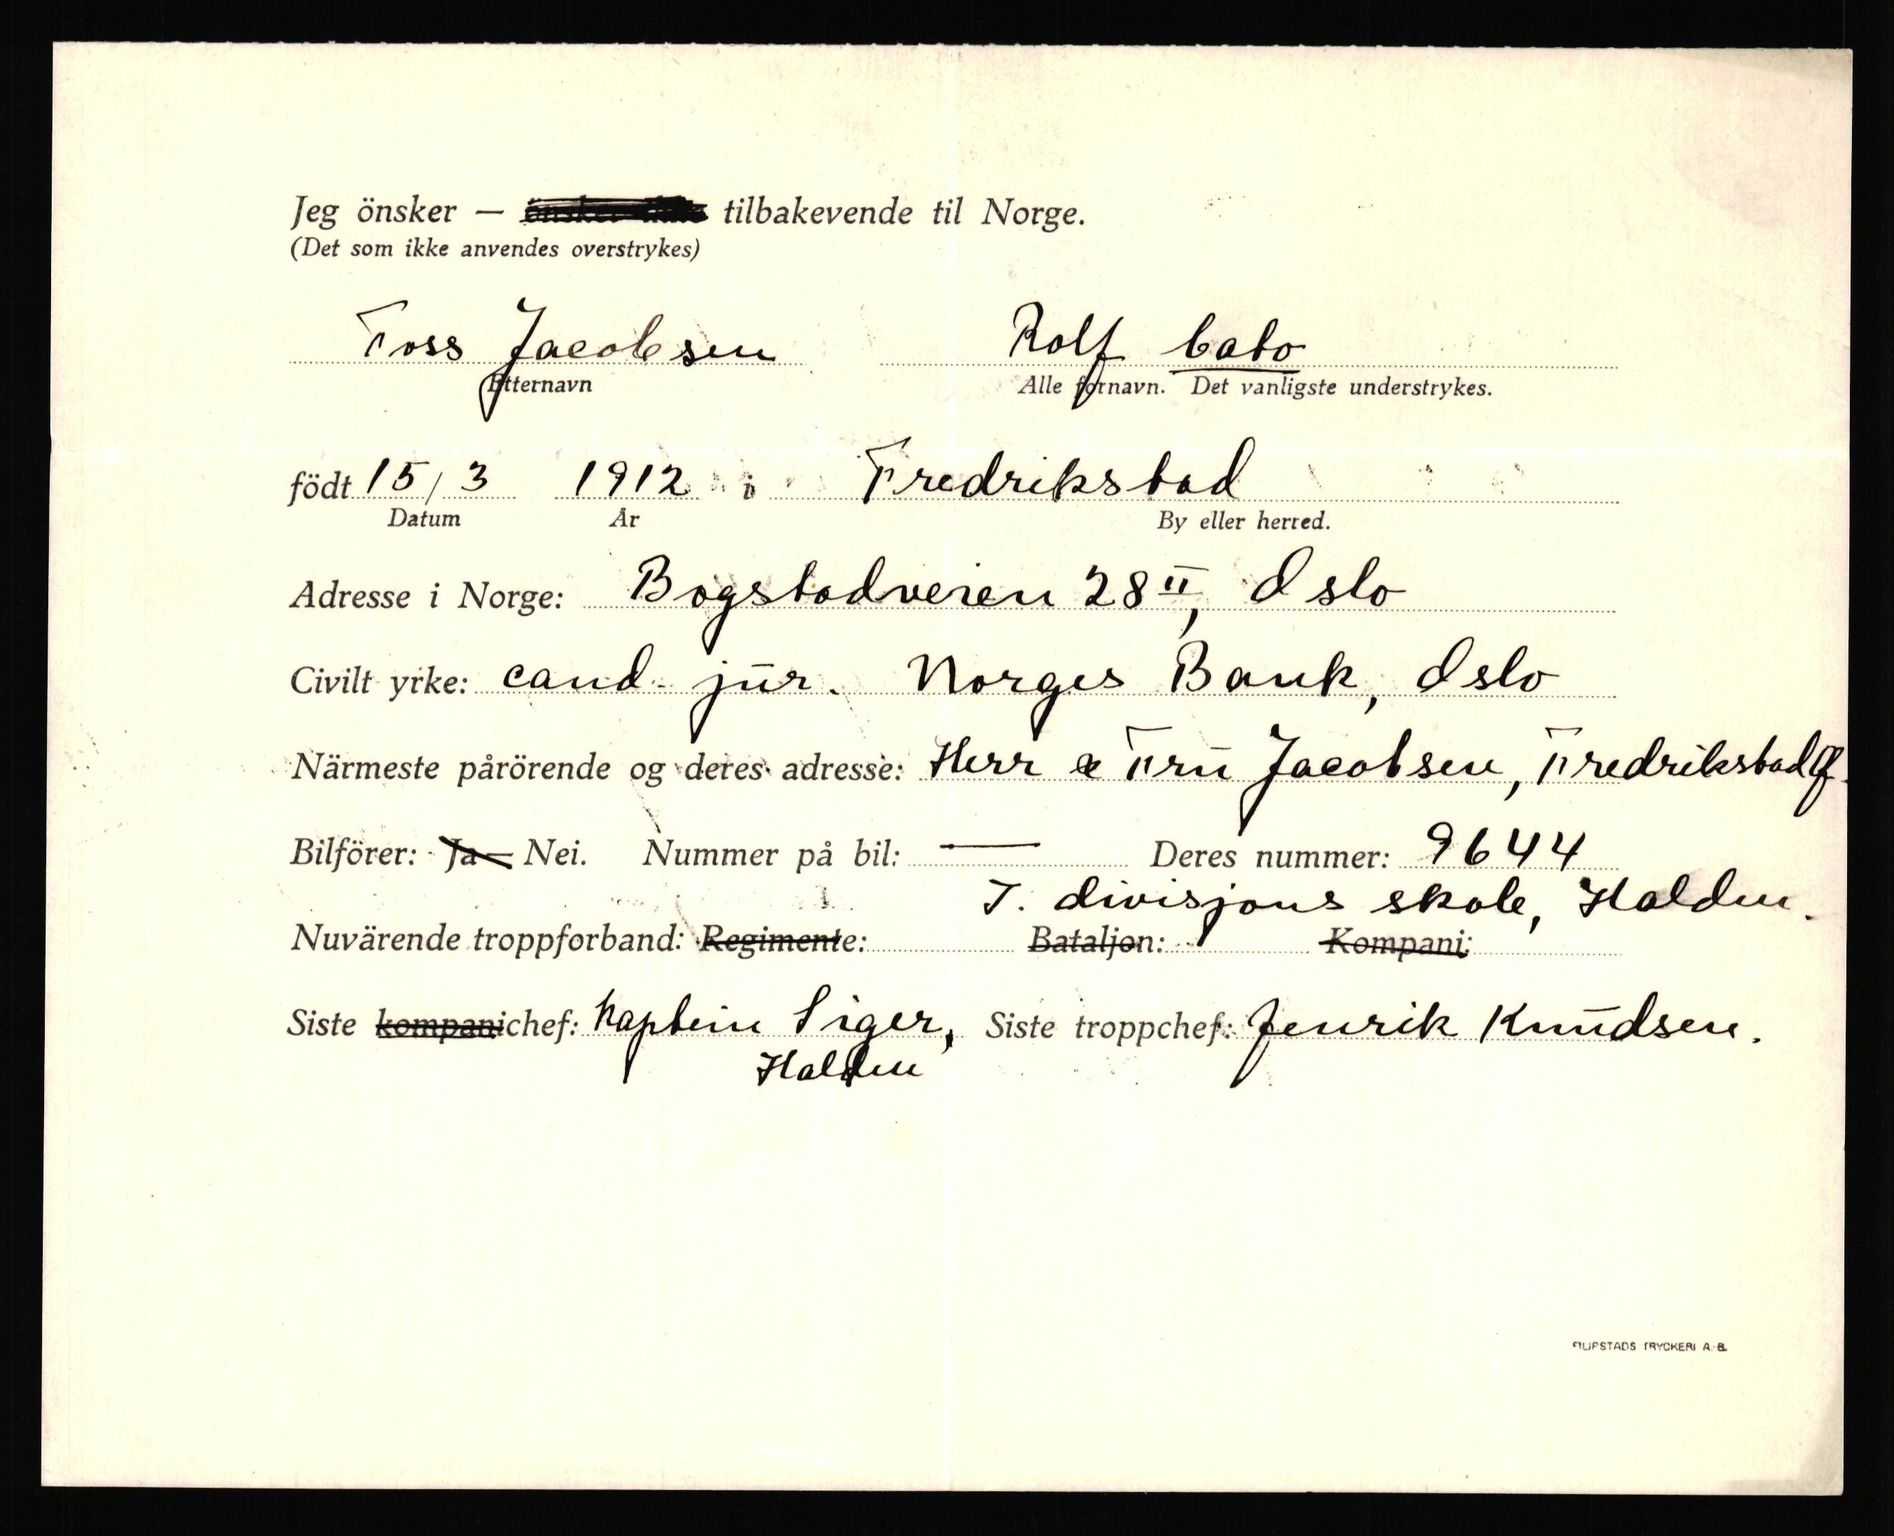 Jeg önsker — önsker ikke tilbakevende til Norge.
(Det som ikke anvendes overstrykes)
Foss Jacobsen Rolf Cato
Etternavn Alle fornavn. Det vanligste understrykes.
födt 15/3 1912 i Fredrikstad
Datum År By eller herred.
Adresse i Norge: Bogstadveien 28 II, Oslo
Civilt yrke: cand. jur. Norges Bank, Oslo
Närmeste pårörende og deres adresse: Herr & Fru Jacobsen, Fredrikstad
Bilförer: Ja — Nei. Nummer på bil: — Deres nummer: 9644
I. divisjons skole, Halden.
Nuvärende troppforband: Regimente: Bataljon: Kompani:
Siste kompanichef: Kaptein Siger, Siste troppchef: Henrik Knudsen.
Halden
FILIPSTADS TRYCKERI A.-B.